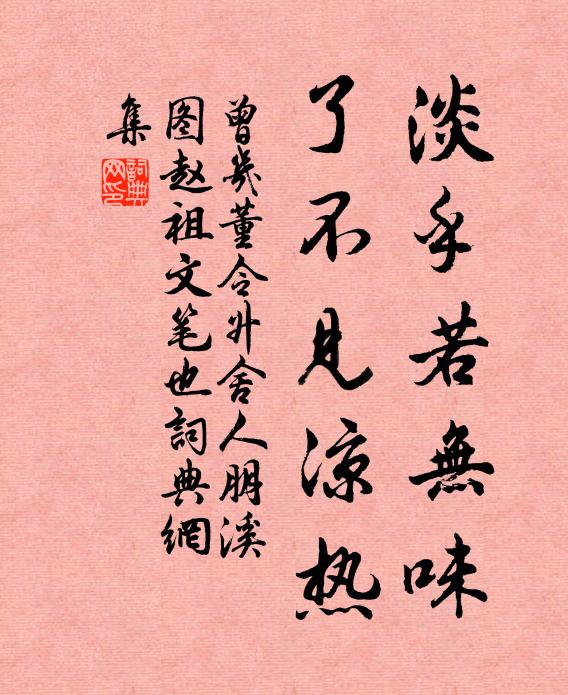 淡乎若無味
了不見涼热
曾幾董令升舍人朋溪
图赵祖文笔也詞典網
集
詞典
网印